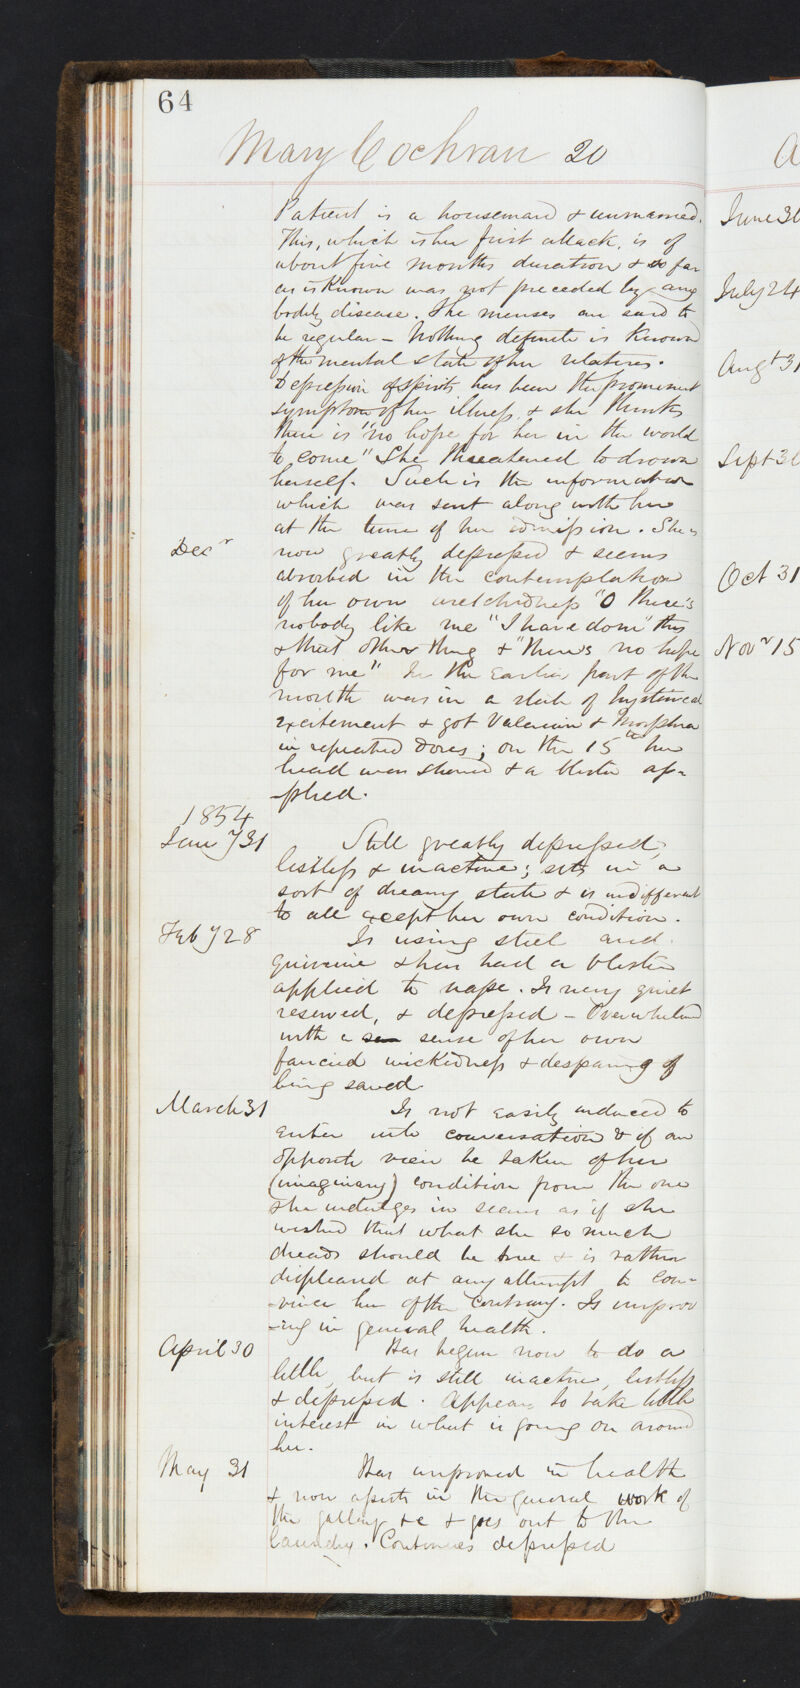 64
Mary Cochran 20
Patient is a housemaid & unmarried.
This, which is her first attack, is of
about five months duration & so far
as is known was not preceded by any
bodily disease. The menses are said to
be regular – Nothing definite is known
of the mental state of her relatives.
Depression of spirits has been the prominent
symptom of her illness, & she thinks
there is "no hope for her in the world
to come" She threatened to drown
herself. Such is the information
which was sent along with her
at the time of her admission. She is
Decr now greatly depressed & seems
absorbed in the contemplation
of her own wretchedness "O there's
nobody like me "I have done" this
& that other thing & "there's no hope
for me" In the earlier part of the
month was in a state of hysterical
excitement & got Valerian & Morphia
in repeated doses; on the 15th her
head was shaved & a blister ap-
-plied.
1854
Jany 31 Still greatly depressed,
listless & inactive; sits in a
sort of dreamy state & is indifferent
to all except her own condition.
Feby 28 Is using steel and
quinine & has had a blister
applied to nape. Is very quiet
reserved, & depressed – Overwhelmed
with a sense of her own
fancied wickedness & despairing of
being saved
March 31 Is not easily induced to
enter into conversation & if an
opposite view be taken of her
(imaginary) condition from the one
she indulges in seems as if she
wished that what she so much
dreads should be true & is rather
displeased at any attempt to con-
-vince her of the contrary. Is improv
-ing in general health.
April 30 Has begun now to do a
little, but is still inactive, listless
& depressed. Appears to take little
interest in what is going on around
her.
May 31 Has improved in health
& now assists in the general work of
the gallery &c & goes out to the
laundry. Continues depressed
A
June 30
July 24
Augt 31
Sept 30
Oct 31
Novr 15